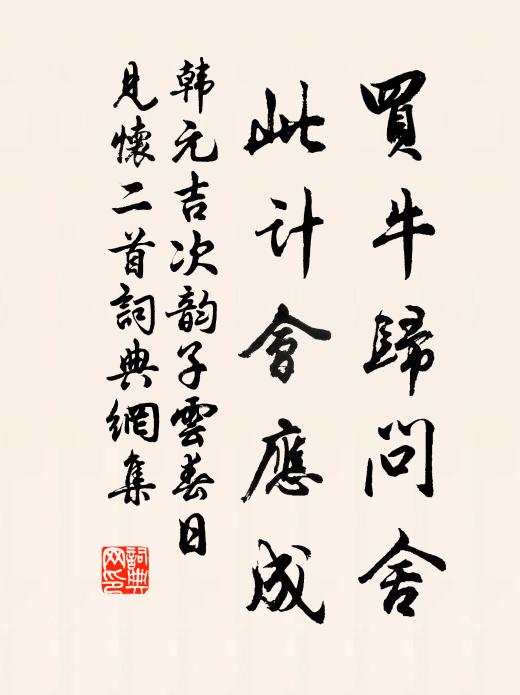 買牛歸問舍
此計會應成
韩元吉次韵子雲春日
見懷二首詞典網集
詞典
网印